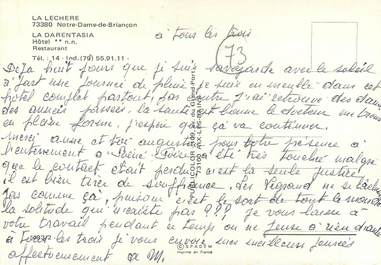 LA LECHERE
73380 Notre-Dame-de-Briançon
LA DARENTASIA
Hôtel ** n.n.
Restaurant
Tél. : 14 - Ind (79) 55.91.11 -
à tous les trois
73
Déjà huit jours que je suis avec le soleil
à part une journée de pluie, je suis en meublé dans cet
hôtel complet partout, par contre j'ai retrouvé des dames
des années passées, la santé est bonne le docteur me trouve
en pleine forme, j'espère que ça va continuer.
Merci anne et toi augustin pour votre présence à
l'enterrement été très touchée malgré
que le contact était perdu c'est la seule justice,
il est bien tiré de souffrance, des se lâche
pas comme ça, puisque c'est le sort de tout le monde
la solitude que pas ??? je vous laisse à
votre travail pendant ce temps on ne pense à rien d'autre
à tous les trois je vous envoie mes meilleures pensées
affectueusement M.
© SPADEM
Imprimé en France